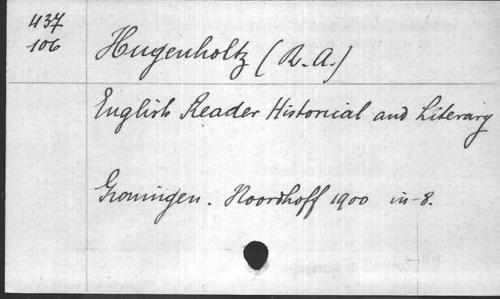 437
106
Hugenholtz (R. A.)
English Reader Historical and Literary
Groningen. Noordhoff 1900 in-8.